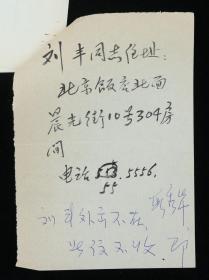 刘丰同志住址:
北京饭店北面
晨光街10号304房
间
电话 5556.
55
刘丰外出不在
此信不收 即